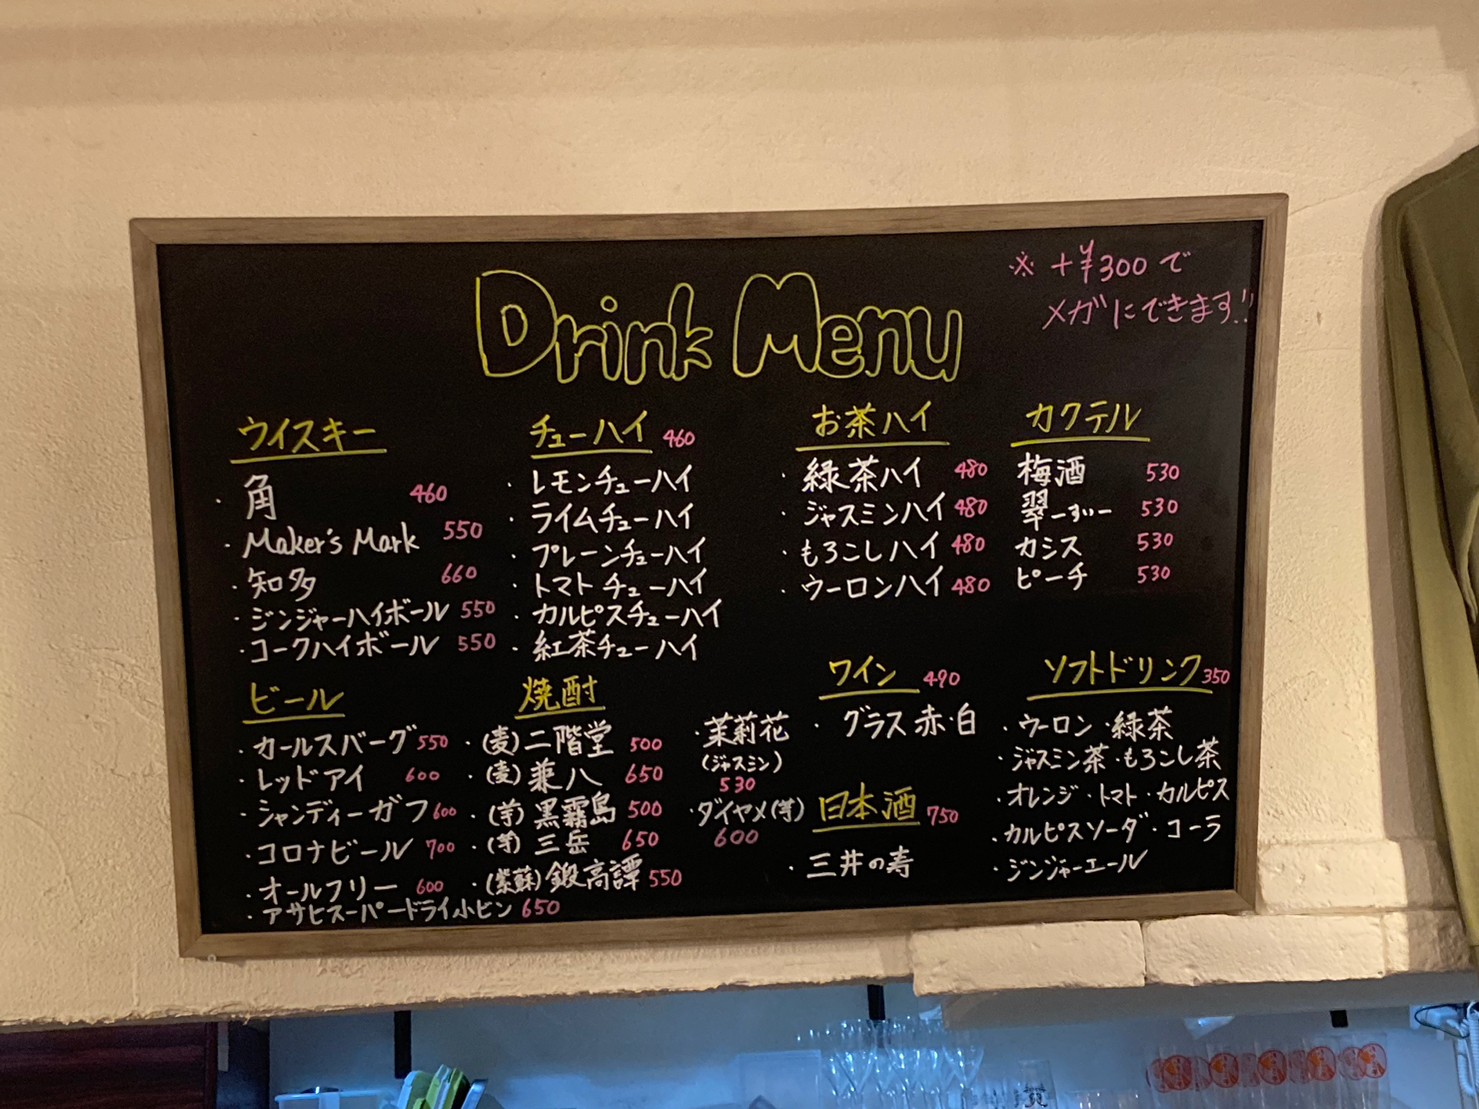 Drink Menu
※ +¥300で
メガにできます!!
ウイスキー
・角 460
・Maker's Mark 550
・知多 660
・ジンジャーハイボール 550
・コークハイボール 550
チューハイ 460
・レモンチューハイ
・ライムチューハイ
・プレーンチューハイ
・トマトチューハイ
・カルピスチューハイ
・紅茶チューハイ
お茶ハイ
・緑茶ハイ 480
・ジャスミンハイ 480
・もろこしハイ 480
・ウーロンハイ 480
カクテル
梅酒 530
翠ーすいー 530
カシス 530
ピーチ 530
ビール
・カールスバーグ 550
・レッドアイ 600
・シャンディーガフ 600
・コロナビール 700
・オールフリー 600
・アサヒスーパードライ小ビン 650
焼酎
・(麦)二階堂 500
・(麦)兼八 650
・(芋)黒霧島 500
・(芋)三岳 650
・(紫蘇)鍛高譚 550
・茉莉花
(ジャスミン)
530
・ダイヤメ(芋)
600
ワイン 490
・グラス 赤・白
日本酒 750
・三井の寿
ソフトドリンク 350
・ウーロン・緑茶
・ジャスミン茶・もろこし茶
・オレンジ・トマト・カルピス
・カルピスソーダ・コーラ
・ジンジャーエール